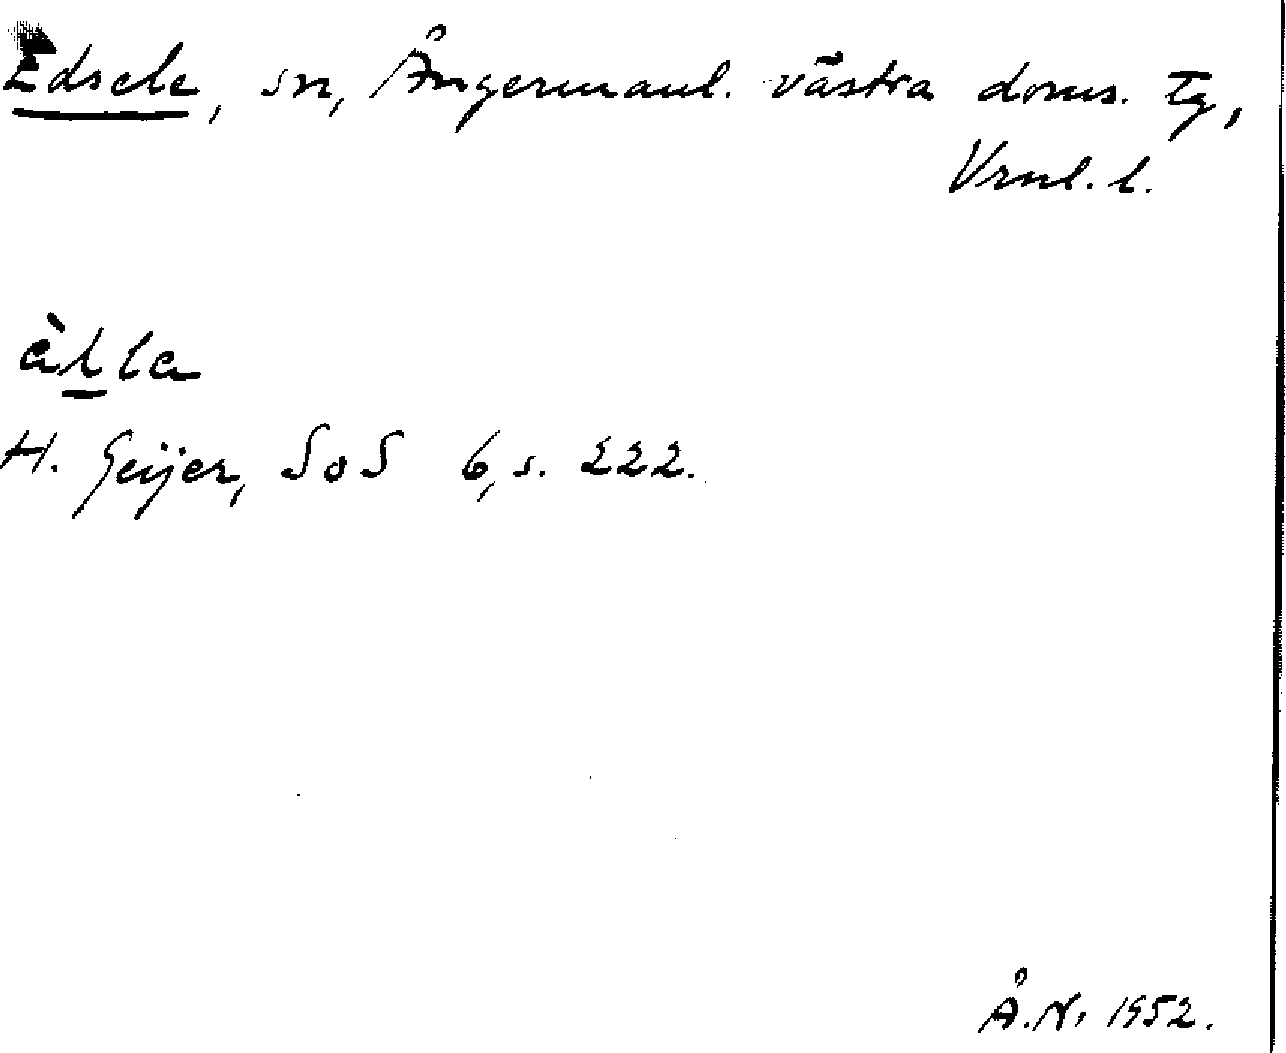 Edsele, sn, Ångermanl. västra doms. tg,
Vrnl. l.
H. Geijer, SoS 6, s. 222.
Å.N. 1952.